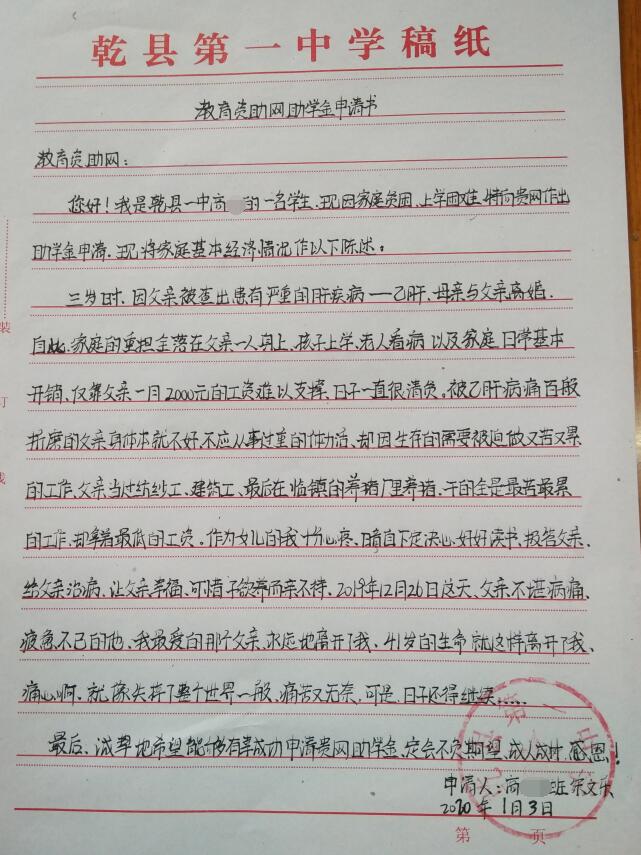 乾县第一中学稿纸
教育资助网助学金申请书
教育资助网：
您好！我是乾县一中高 的一名学生，现因家庭贫困，上学困难，特向贵网作出
助学金申请，现将家庭基本经济情况作以下陈述：
三岁时，因父亲被查出患有严重的肝疾病——乙肝，母亲与父亲离婚，
自此，家庭的重担全落在父亲一人身上，孩子上学，老人看病以及家庭日常基本
开销，仅靠父亲一月2000元的工资难以支撑，日子一直很清贫。被乙肝病痛百般
折磨的父亲身体本就不好，不应从事过重的体力活，却因生存的需要被迫做又苦又累
的工作，父亲当过纺纱工、建筑工、最后在临镇的养猪厂里养猪，干的全是最苦最累
的工作，却拿着最低的工资。作为女儿的我十分心疼，暗自下定决心，好好读书，报答父亲，
给父亲治病，让父亲幸福，可惜子欲养而亲不待，2019年12月26日这天，父亲不堪病痛，
疲惫不已的他，我最爱的那个父亲，永远地离开了我，41岁的生命就这样离开了我，
痛心啊，就像失去了整个世界一般，痛苦又无奈，可是，日子还得继续……
最后，诚挚地希望能够有幸成功申请贵网助学金，定会不负期望，成人成才，感恩！
申请人：高 班 宋文乐
2020年1月3日
第 页
装
订
线